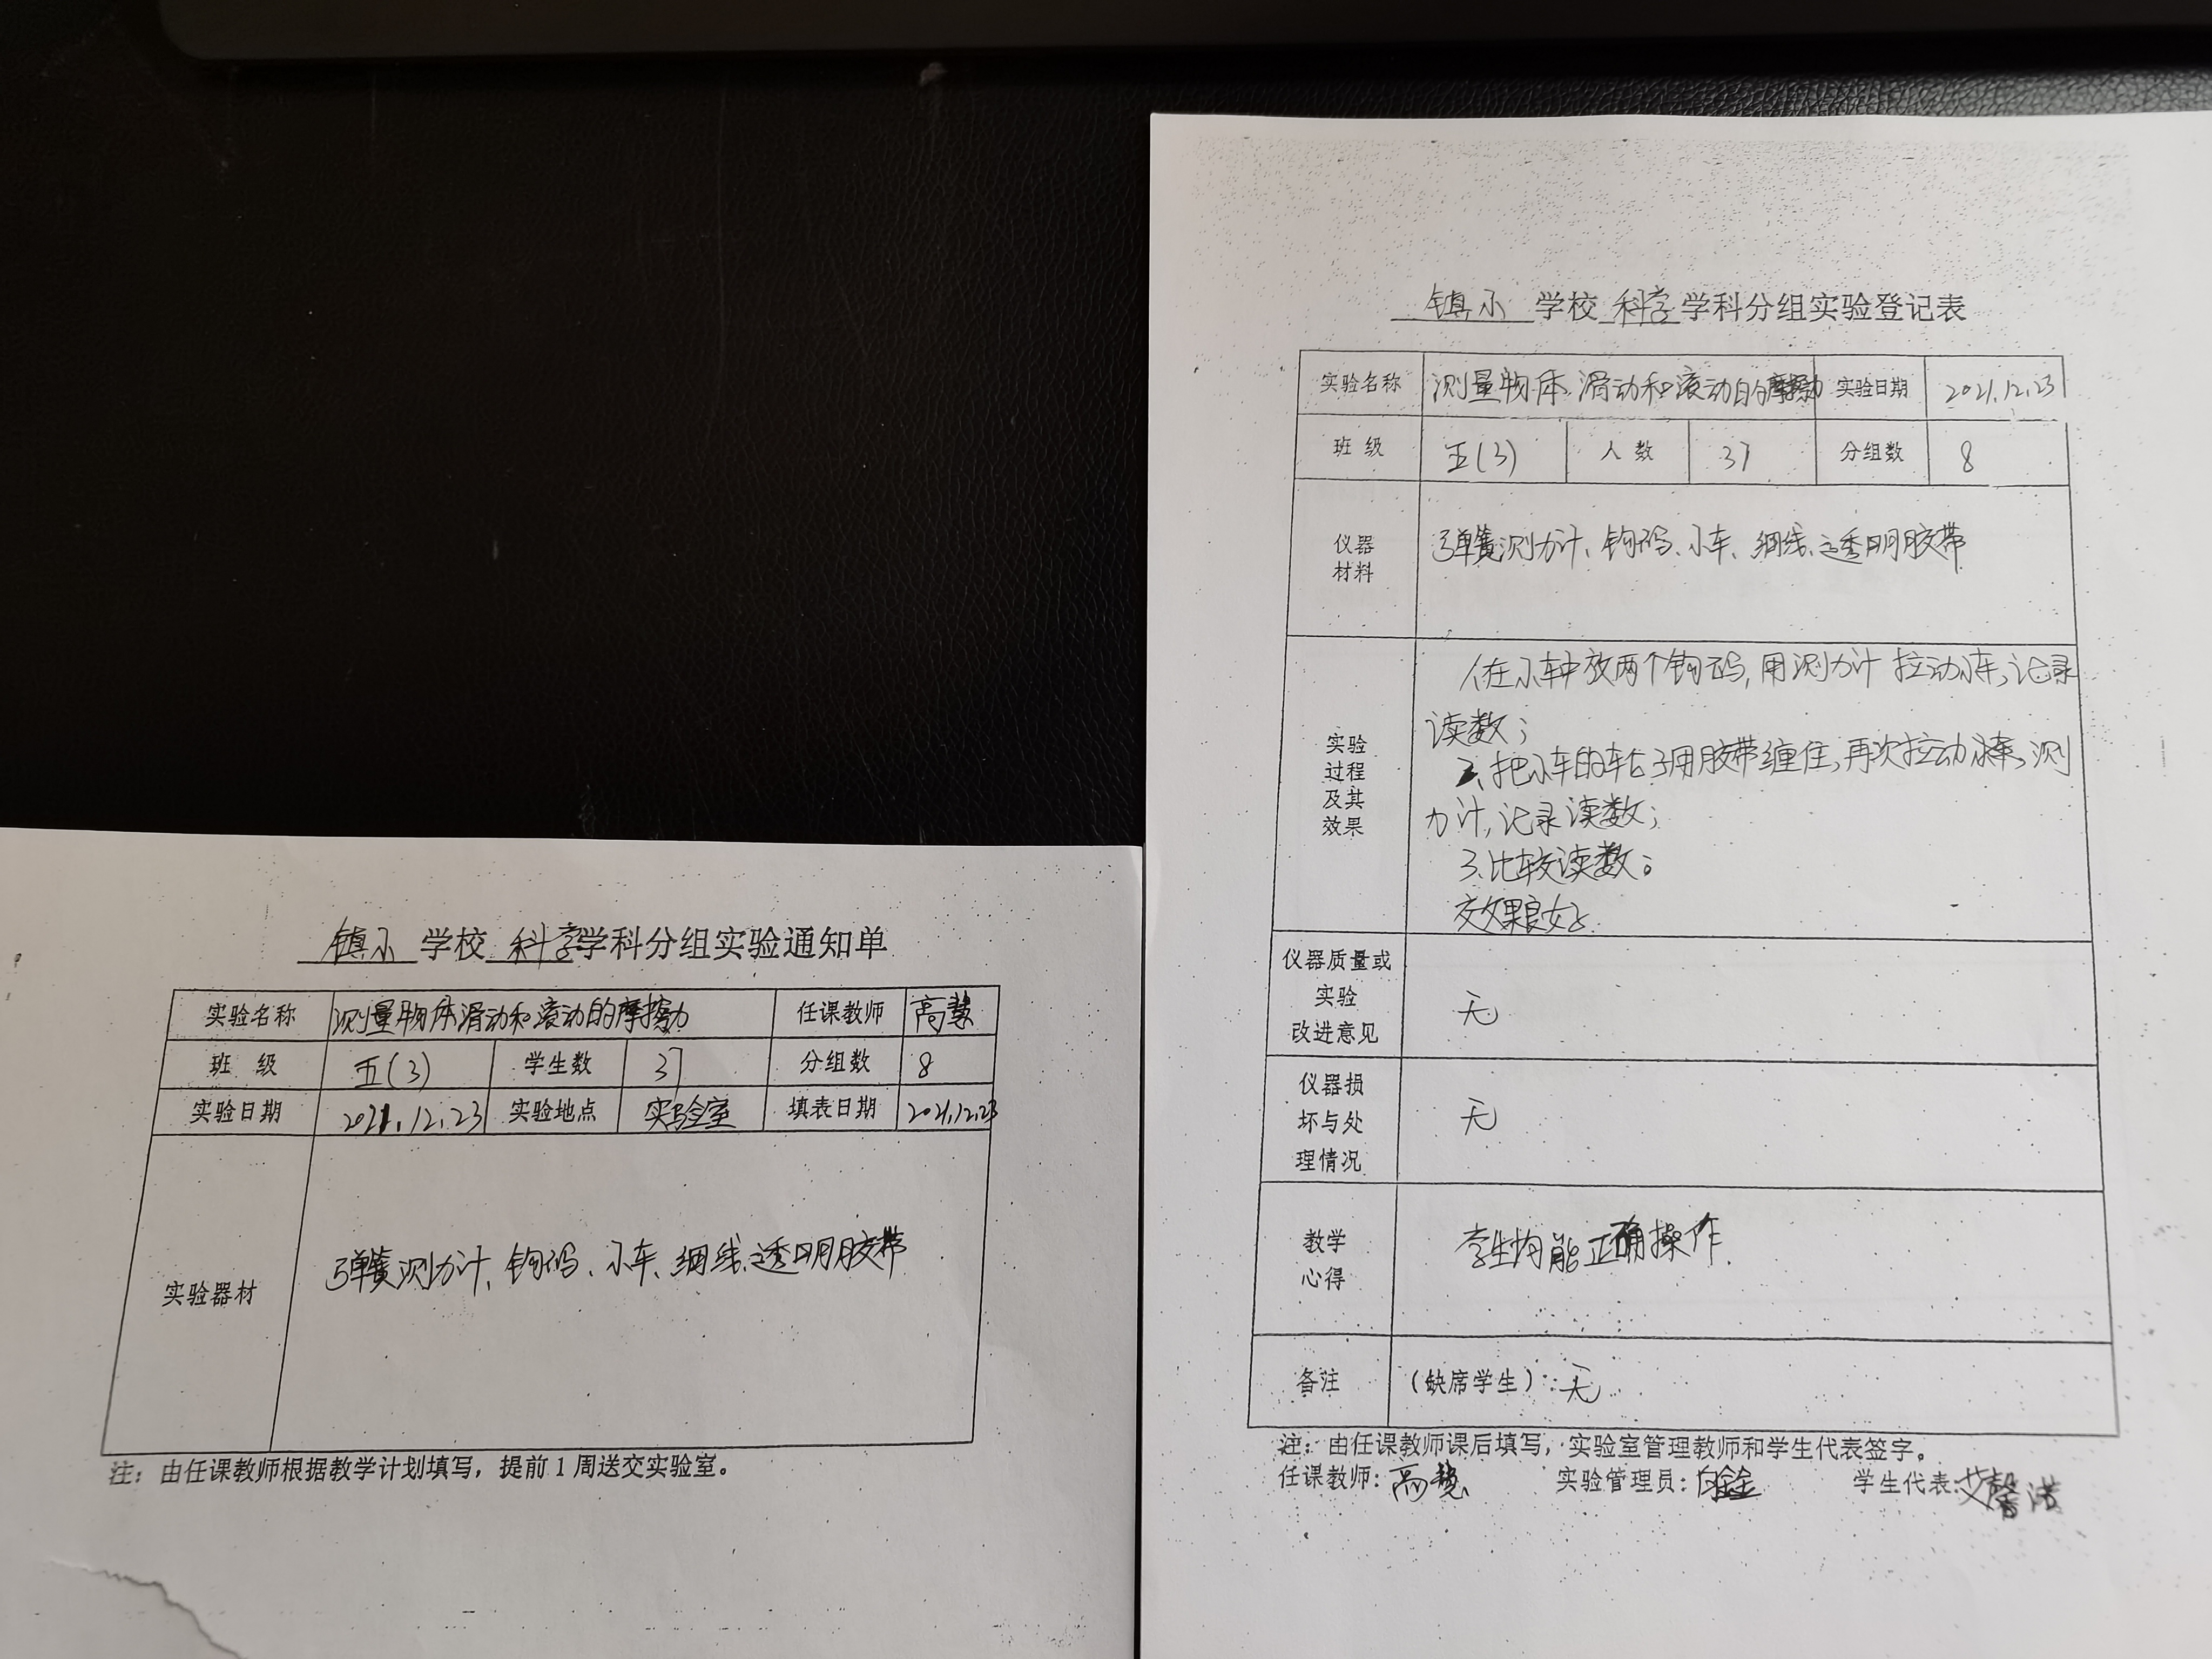 镇小 学校 科学 学科分组实验通知单
实验名称 测量物体滑动和滚动的摩擦力 任课教师 高慧
班 级 五(3) 学生数 37 分组数 8
实验日期 2021.12.23 实验地点 实验室 填表日期 2021.12.23
实验器材 弹簧测力计、钩码、小车、细线、透明胶带
注：由任课教师根据教学计划填写，提前1周送交实验室。
镇小 学校 科学 学科分组实验登记表
实验名称 测量物体滑动和滚动的摩擦力 实验日期 2021.12.23
班 级 五(3) 人 数 37 分组数 8
仪器
材料
弹簧测力计、钩码、小车、细线、透明胶带
实验
过程
及其
效果
1.在小车中放两个钩码,用测力计拉动小车,记录
读数;
2.把小车的车轮子用胶带缠住,再次拉动小车,测
力计,记录读数;
3.比较读数。
效果良好
仪器质量或
实验
改进意见
无
仪器损
坏与处
理情况
无
教学
心得
学生均能正确操作.
备注 （缺席学生）：无
注：由任课教师课后填写，实验室管理教师和学生代表签字。
任课教师：高慧 实验管理员： 学生代表：艾馨诺